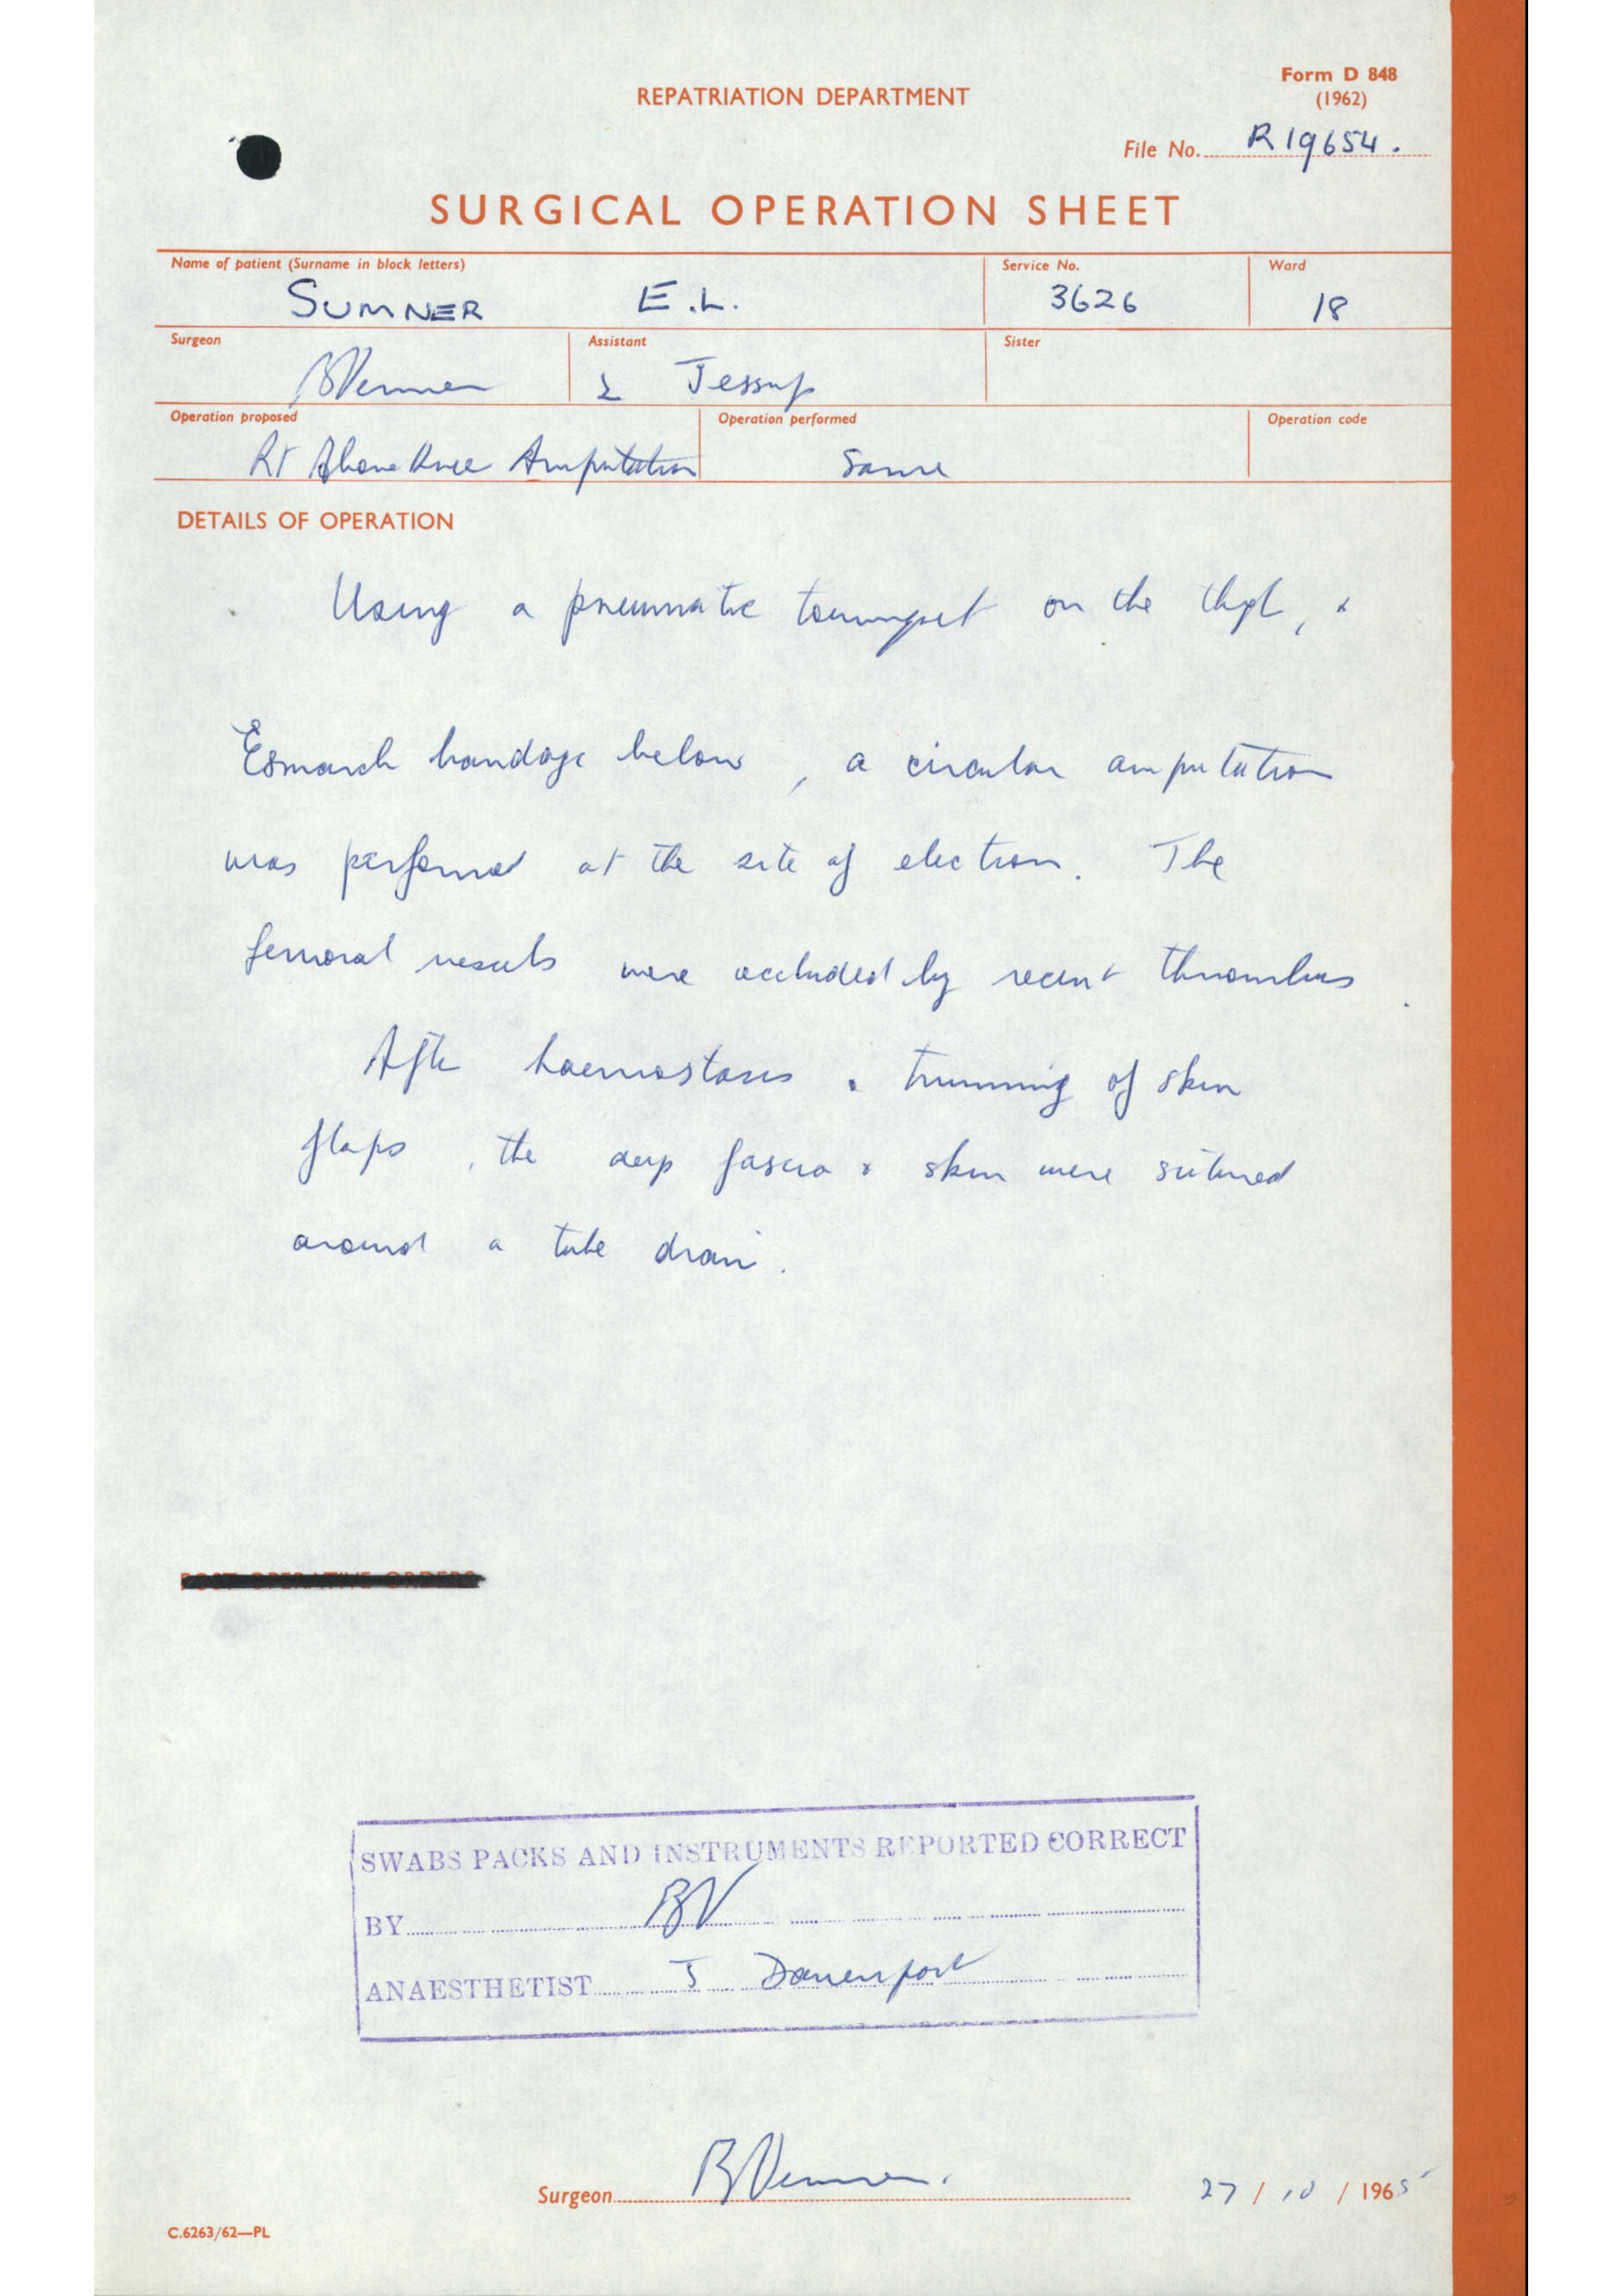 Form D 848
REPATRIATION DEPARTMENT
(1962)
File No. R19654.
SURGICAL OPERATION SHEET
Name of patient (Surname in block letters) Service No. Ward
SUMNER E.L. 3626 18
Surgeon Assistant Sister
Jessup
Operation proposed Operation performed Operation code
Rt Above Knee Amputation Same
DETAILS OF OPERATION
Using a pneumatic tourniquet on the thigh, &
Esmarch bandage below, a circular amputation
was performed at the site of election. The
femoral vessels were occluded by recent thrombus.
After haemostasis & trimming of skin
flaps, the deep fascia & skin were sutured
around a tube drain.
POST OPERATIVE ORDERS
SWABS PACKS AND INSTRUMENTS REPORTED CORRECT
BY BV
ANAESTHETIST J Davenport
Surgeon 27/10/1965
C.6263/62—PL